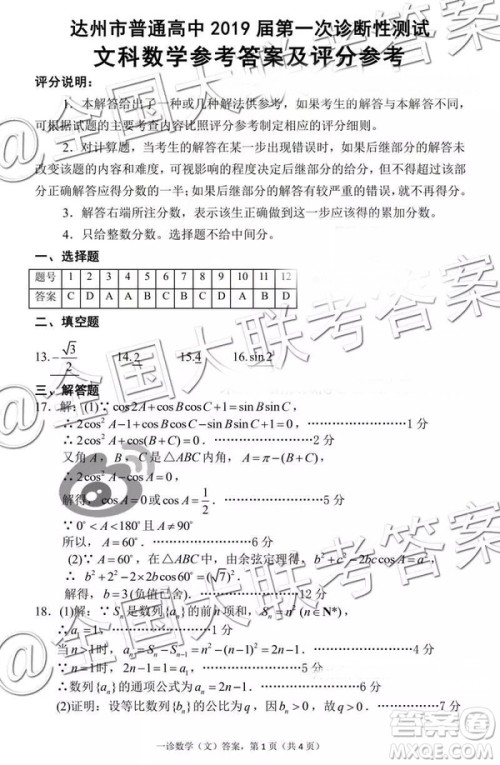 达州市普通高中 2019 届第一次诊断性测试
文科数学参考答案及评分参考
评分说明：
1．本解答给出了一种或几种解法供参考，如果考生的解答与本解答不同，
可根据试题的主要考查内容比照评分参考制定相应的评分细则．
2．对计算题，当考生的解答在某一步出现错误时，如果后继部分的解答未
改变该题的内容和难度，可视影响的程度决定后继部分的给分，但不得超过该部分
正确解答应得分数的一半；如果后继部分的解答有较严重的错误，就不再给分．
3．解答右端所注分数，表示该生正确做到这一步应该得的累加分数．
4．只给整数分数。选择题不给中间分。
一、选择题
题号 1 2 3 4 5 6 7 8 9 10 11 12
答案 C D A A B A C B D
二、填空题
13.-√3/2 14.2 15.4 16.sin2
三、解答题
17．解：(1)∵ cos2A+cosBcosC+1=sinBsinC，
∴ 2cos²A+cosBcosC−sinBsinC=0．……1 分
∴ 2cos²A+cos(B+C)=0．……2 分
又角 A，B，C 是△ABC 内角，A=π−(B+C)，
∴ 2cos²A−cosA=0．……4 分
解得，cosA=0或cosA=1/2．……5 分
∵ 0°<A<180°且A≠90°
所以，A=60°．……6 分
(2)∵ A=60°，在△ABC中，由余弦定理得，b²+c²−2bccosA=a²，
∴ b²+2²−2×2bcos60°=(√7)²．
解得，b=3(负值已舍)．……12 分
18．(1)解：∵ Sₙ是数列{aₙ}的前n项和，Sₙ=n²(n∈N*)，
∴ a₁=1，……1 分
当n>1时，aₙ=Sₙ−Sₙ₋₁=n²−(n−1)²=2n−1．……4 分
∵ n=1时，2n−1=1=a₁．……5 分
∴ 数列{aₙ}的通项公式为aₙ=2n−1．……6 分
(2)证明：设等比数列{bₙ}的公比为q，因bₙ>0，故q>0．……7 分
一诊数学（文）答案，第 1 页（共 4 页）
@全国大联考答案
答案圈